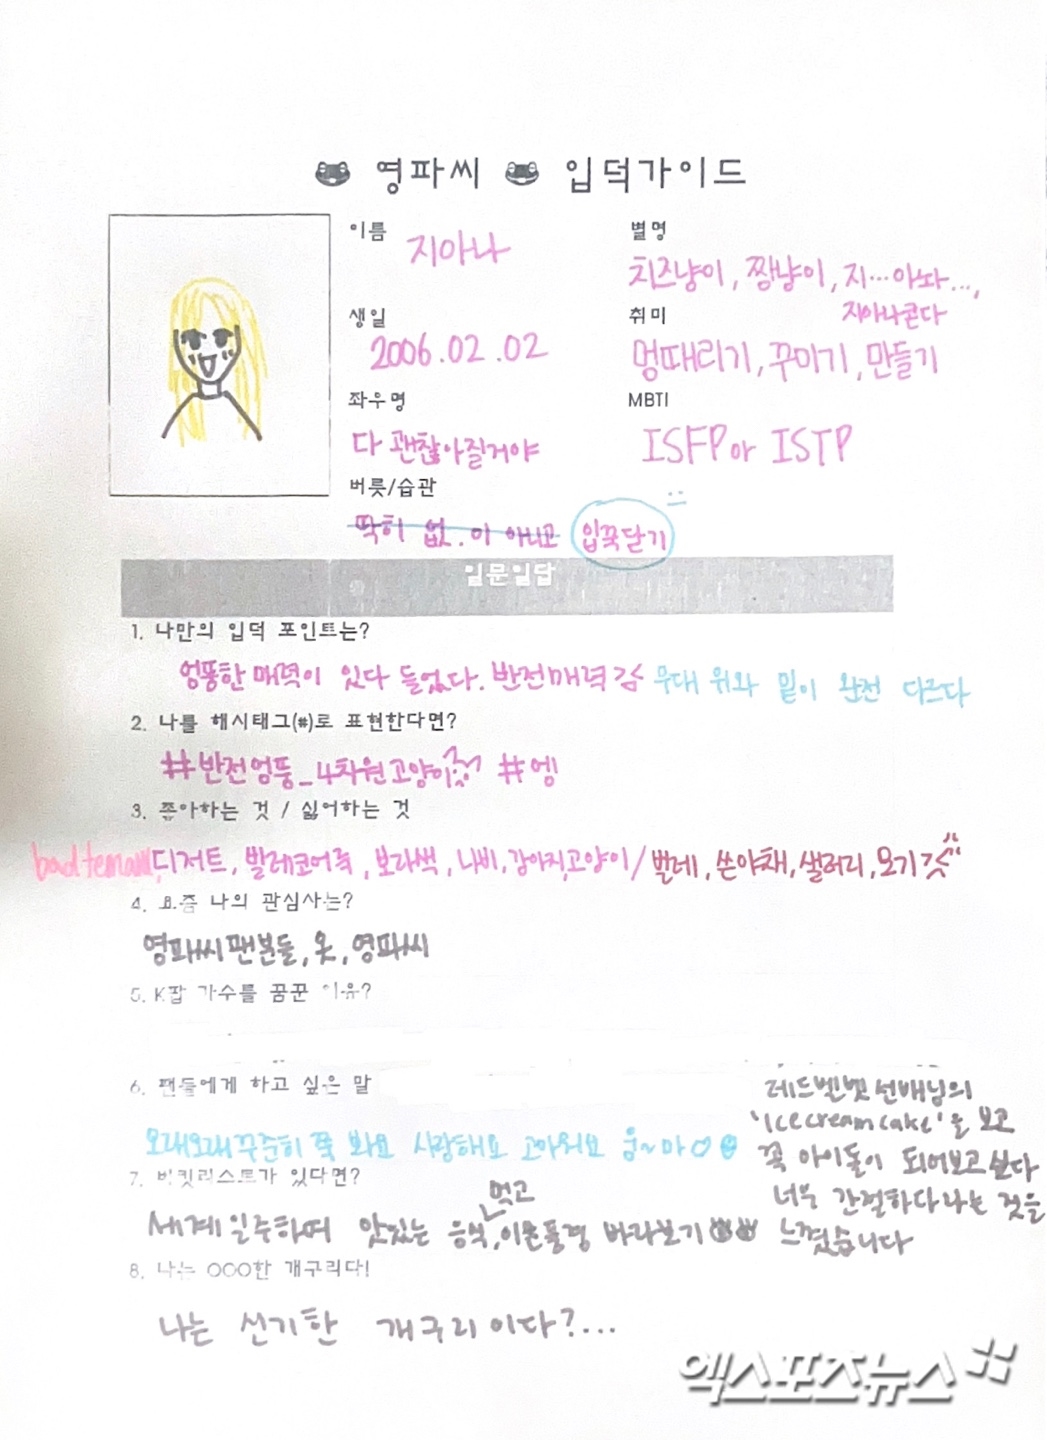 영파씨 입덕가이드
이름
지아나
별명
치즈냥이, 짱냥이, 지…아놔…,
지아나콘다
생일
2006.02.02
취미
멍때리기, 꾸미기, 만들기
좌우명
다 괜찮아질거야
MBTI
ISFP or ISTP
버릇/습관
딱히 없. 이 아니고 입꾹닫기
일문일답
1. 나만의 입덕 포인트는?
엉뚱한 매력이 있다 들었다. 반전매력 갊 무대 위와 밑이 완전 다르다
2. 나를 해시태그(#)로 표현한다면?
#반전엉뚱_4차원고양이 #엥
3. 좋아하는 것 / 싫어하는 것
디저트, 발레코어룩, 보라색, 나비, 강아지,고양이 / 벌레, 쓴야채, 샐러리, 모기
4. 요즘 나의 관심사는?
영파씨팬분들, 옷, 영파씨
5. K팝 가수를 꿈꾼 이유?
레드벨벳 선배님의
'Ice cream cake'을 보고
꼭 아이돌이 되어보고싶다
너무 간절하다 나는 것을
느꼈습니다
6. 팬들에게 하고 싶은 말
오래오래 꾸준히 쭉 봐요 사랑해요 고마워요 움~마♡
7. 버킷리스트가 있다면?
세계일주하며 맛있는 음식 먹고, 이쁜풍경 바라보기
8. 나는 OOO한 개구리다!
나는 신기한 개구리이다?...
엑스포츠뉴스